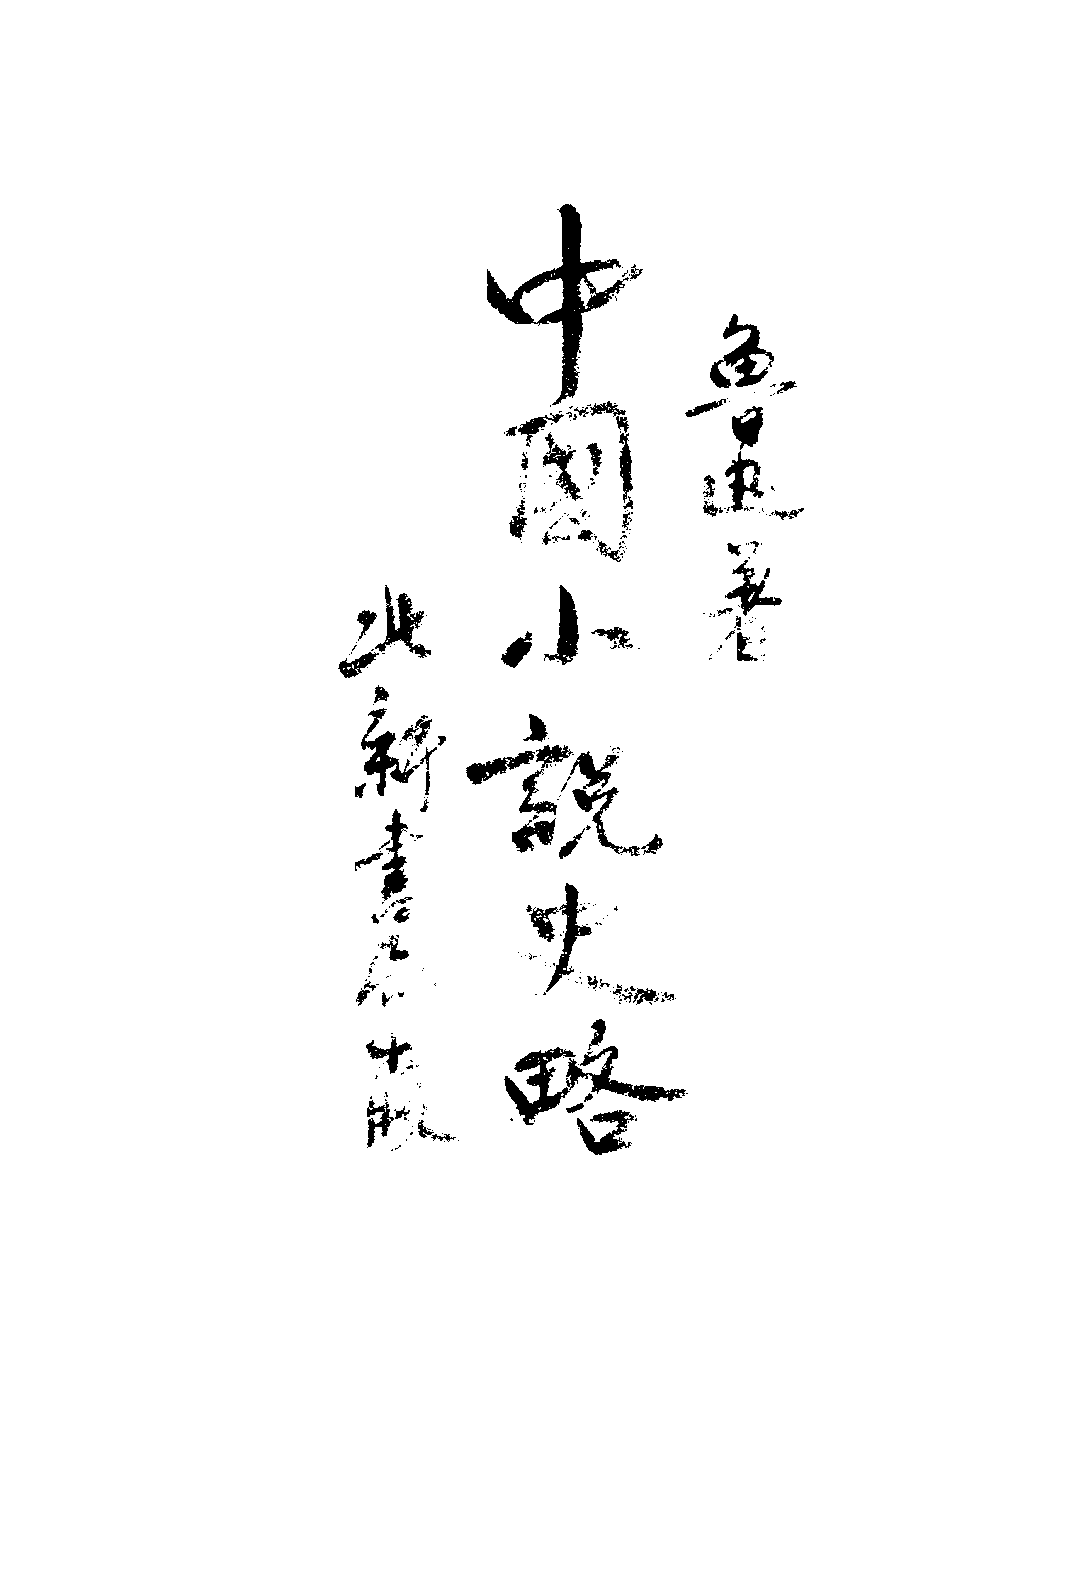 魯迅著
中國小說史略
北新書局出版